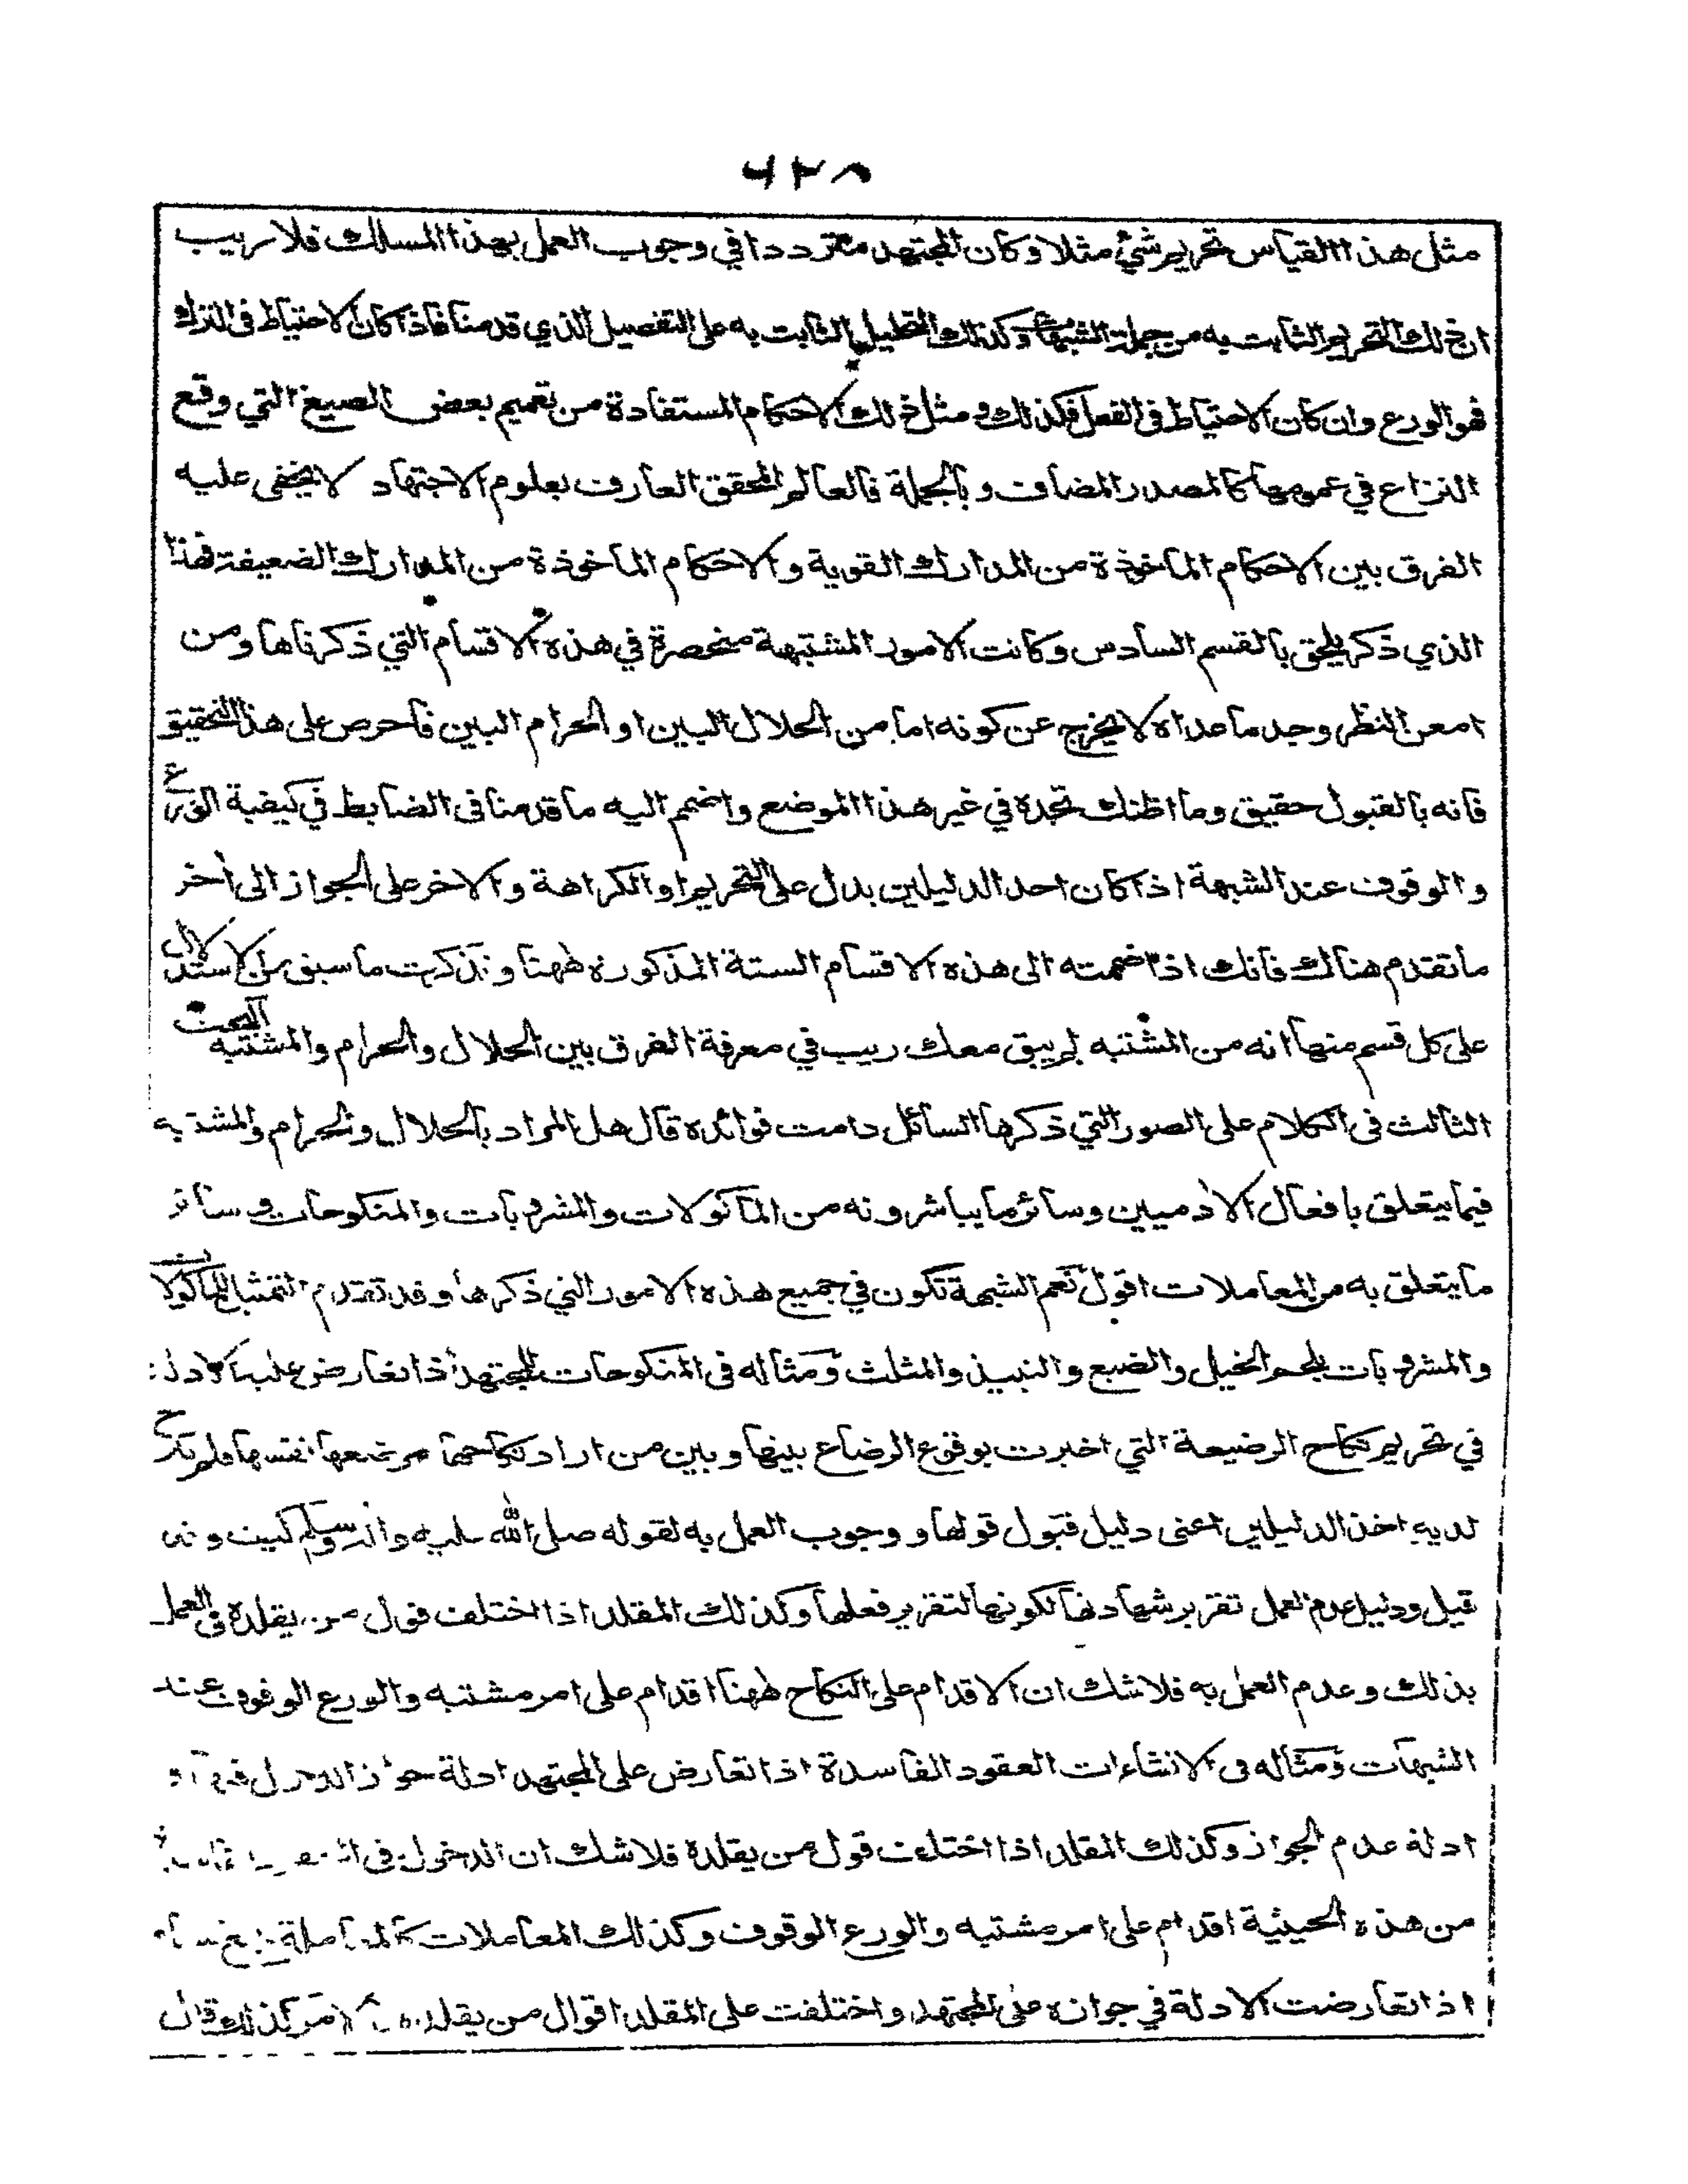 ٦٢٨
مثل هذا القياس تحريم شئ مثلا وكان المجتهد مترددا في وجوب العمل بهذا المسالك فلا ريب
ان ذلك التحريم الثابت به من جملة الشبهات وكذلك التحليل الثابت به على التفصيل الذي قدمنا فاذا كان الاحتياط في الترك
فهو الورع وان كان الاحتياط في الفعل فكذلك و مثل ذلك الاحكام المستفادة من تعميم بعض الصيغ التي وقع
النزاع في عمومها كالمصدر المضاف و بالجملة فالعالم المحقق العارف بعلوم الاجتهاد لا يخفى عليه
الفرق بين الاحكام الماخوذة من المدارك القوية والاحكام الماخوذة من المدارك الضعيفة فهذا
الذي ذكر يلحق بالقسم السادس وكانت الامور المشتبهة منحصرة في هذه الاقسام التي ذكرناها ومن
امعن النظر وجد ما عداه لا يخرج عن كونه اما من الحلال البين او الحرام البين فاحرص على هذا التحقيق
فانه بالقبول حقيق وما اظنك تجده في غير هذا الموضع واضمم اليه ما قدمنا في الضابط في كيفية الورع
والوقوف عند الشبهة اذا كان احد الدليلين يدل على التحريم او الكراهة والاخر على الجواز الى أخر
ما تقدم هنالك فانك اذا ضممته الى هذه الاقسام الستة المذكورة ههنا وتذكرت ما سبق من الاستدلال
على كل قسم منها انه من المشتبه لم يبق معك ريب في معرفة الفرق بين الحلال والحرام والمشتبه البحث
الثالث في الكلام على الصور التي ذكرها السائل دامت فوائده قال هل المراد بالحلال والحرام والمشتبه
فيما يتعلق بافعال الادميين وسائر ما يباشرونه من المأكولات والمشروبات والمنكوحات و سائر
ما يتعلق به من المعاملات اقول نعم الشبهة تكون في جميع هذه الامور التي ذكرها وقد تقدم التمثيل للماكولات
والمشروبات بلحم الخيل والضبع والنبيذ والمثلث ومثاله في المنكوحات للمجتهد أذا تعارض عليه الادلة
في تحريم نكاح الرضيعة التي اخبرت بوقوع الرضاع بينها وبين من اراد نكاحها مرضعها نفسها فلم ترجح
لديه احد الدليلين اعنى دليل قبول قولها و وجوب العمل به لقوله صلى الله عليه واله وسلم كيف وقد
قيل ودليل عدم العمل تقرير شهادتها لكونها لتقرير فعلها وكذلك المقلد اذا اختلف قول من يقلده في العمل
بذلك وعدم العمل به فلا شك ان الاقدام على النكاح ههنا اقدام على امر مشتبه والورع الوقوف عند
الشبهات ومثاله في الانشاءات العقود الفاسدة اذا تعارض على المجتهد ادلة جواز الدخول فيها و
ادلة عدم الجواز وكذلك المقلد اذا اختلف قول من يقلده فلا شك ان الدخول في
من هذه الحيثية اقدام على امر مشتبه والورع الوقوف وكذلك المعاملات كالمعاملة
اذا تعارضت الادلة في جوازه على المجتهد واختلفت على المقلد اقوال من يقلده كذلك قال